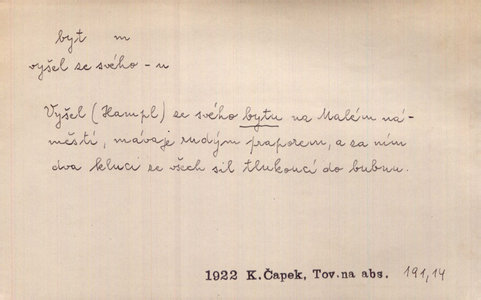 byt m
vyšel ze svého -u
Vyšel (Hampl) ze svého bytu na Malém ná-
městí, mávaje rudým praporem, a za ním
dva kluci ze všech sil tlukoucí do bubnu.
1922 K.Čapek, Tov.na abs. 191,14